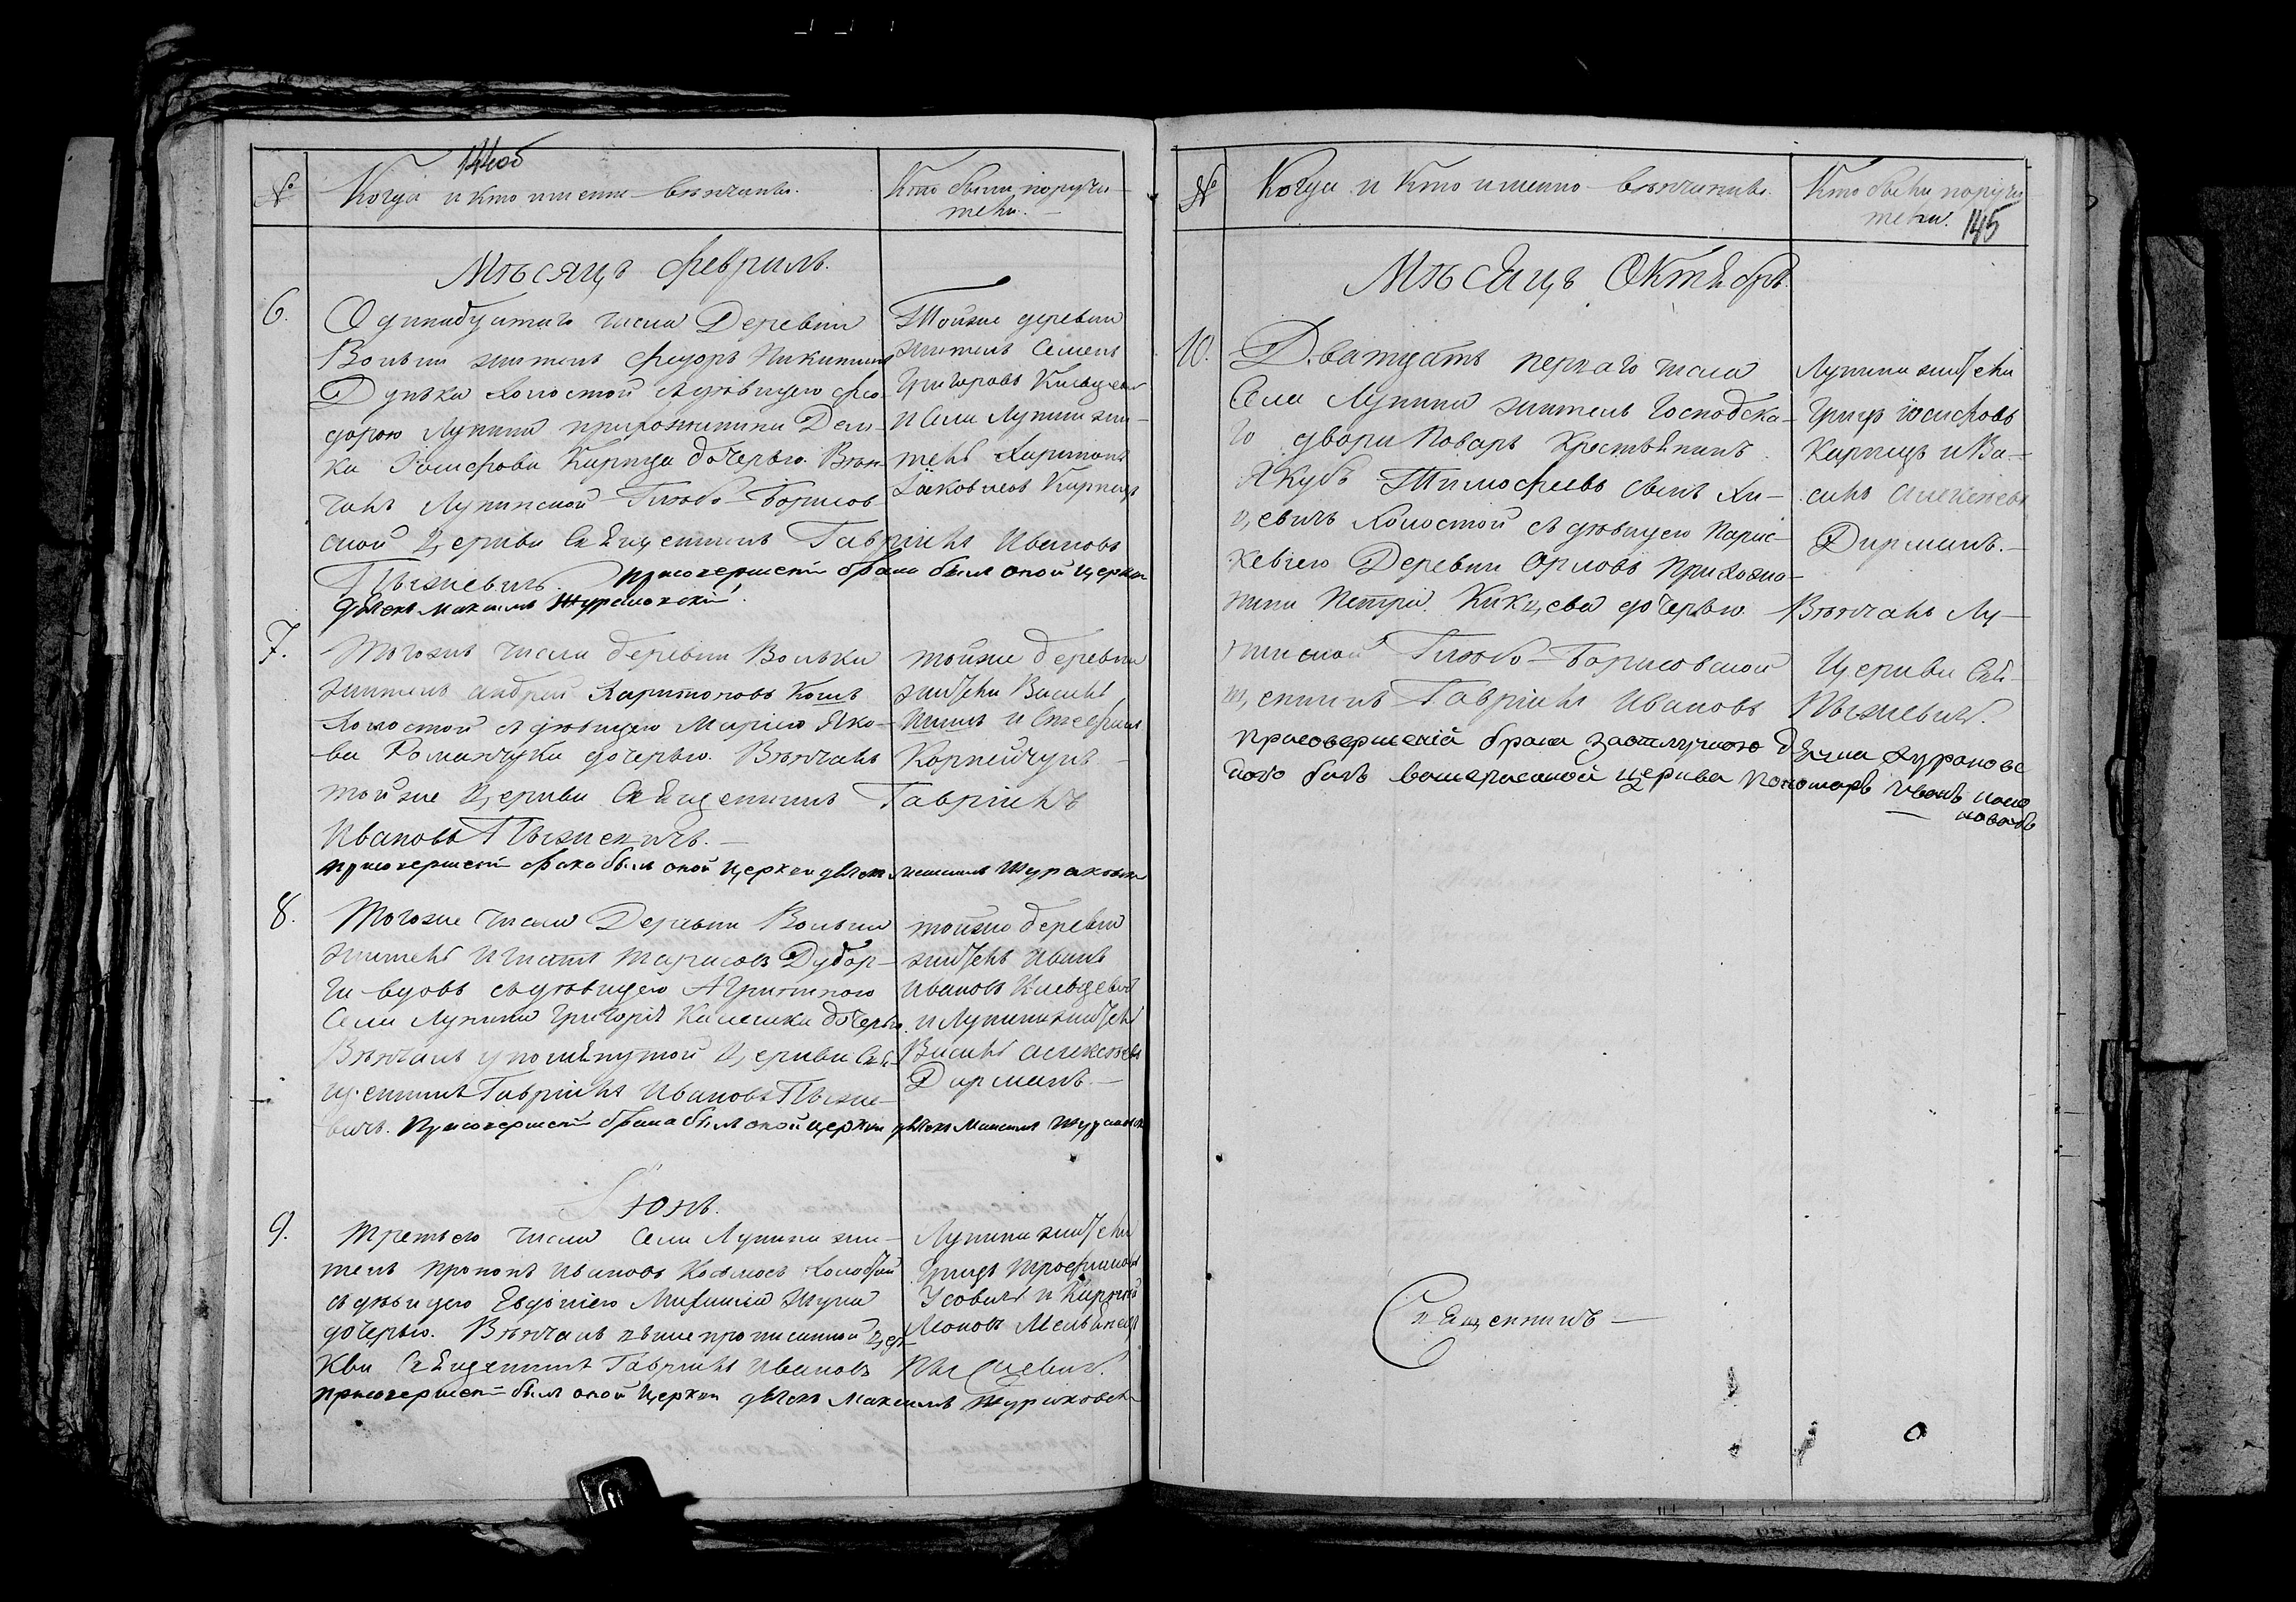 144об
№ Когда и кто именно венчаны. Кто были поручи-
тели.
Мѣсяцъ Февраль.
6. Одинадцатаго числа Деревни
Вольки житель Федоръ Никитинъ
Дунька холостой съ дѣвицею Фео-
дорою Лунина прихожанина Деми-
ка Іосифова Карпца дочерью. Вѣн-
чалъ Лунинской Глѣбо-Борисов-
ской Церкви Священникъ Гавріилъ Ивановъ
Пыжевичъ. При совершеніи брака былъ оной церкви
дьячекъ Максимъ Жураковскій.
Тойже деревни
житель Семенъ
Григоровъ Кивцевичъ
и Села Лунина жи-
тель Харитонъ
Іаковлевъ Карпецъ
7. Тогоже числа деревни Вольки
житель Андрей Харитоновъ Кошъ
холостой съ дѣвицею Маріею Яко-
ва Романчука дочерью. Вѣнчалъ
тойже Церкви Священникъ Гавріилъ
Ивановъ Пыжевичъ.
При совершеніи брака былъ оной церкви дьячекъ Максимъ Жураковскій
тойже деревни
жители Василій
и Стефанъ
Корнейчукъ
8. Тогоже числа Деревни Вольки
житель Игнатій Тарасовъ Дубор-
вдовъ съ дѣвицею Агрипиною
Села Лунина Григорія Калешки дочерью.
Вѣнчалъ упомянутой Церкви Свя-
щенникъ Гавріилъ Ивановъ Пыже-
вичъ. При совершеніи брака былъ оной церкви дьячекъ Максимъ Жураковскій
тойже деревни
житель Иванъ
Ивановъ Кивцевичъ
и Лунина житель
Василій Алексѣевъ
Дирманъ.
Іюнь.
9. Третьего числа Села Лунина жи-
тель Прокопъ Ивановъ Космосъ холостой
съ дѣвицею Евдокіею Михаила Жука
дочерью. Вѣнчалъ вышепрописанной Цер-
кви Священникъ Гавріилъ Ивановъ Пыжевичъ.
При совершеніи былъ оной церкви дьячекъ Максимъ Жураковскій
Лунина жители
Грицъ Трофимовъ
Усовичъ и
Леоновъ
№ Когда и кто именно венчаны. Кто были поручи-
тели. 145
Мѣсяцъ Октябрь.
10. Дватцать перваго числа
Села Лунина житель Господска-
го двора Поваръ Крестьянинъ
Якубъ Тимофеевъ сынъ Хи-
цевичъ холостой съ дѣвицею Парас-
кевіею Деревни Орловъ Прихожа-
нина Петра Кикцева дочерью. Вѣнчалъ Лу-
нинской Глѣбо-Борисовской Церкви Свя-
щенникъ Гавріилъ Ивановъ Пыжевичъ.
При совершеніи брака за отлучкою дьячка Жураковс-
каго былъ вышеписанной церкви Пономарь Иванъ
Лунина жители
Грицъ Іосифовъ
Карпецъ и Ва-
силь Алексѣевъ
Дирманъ.
Священникъ